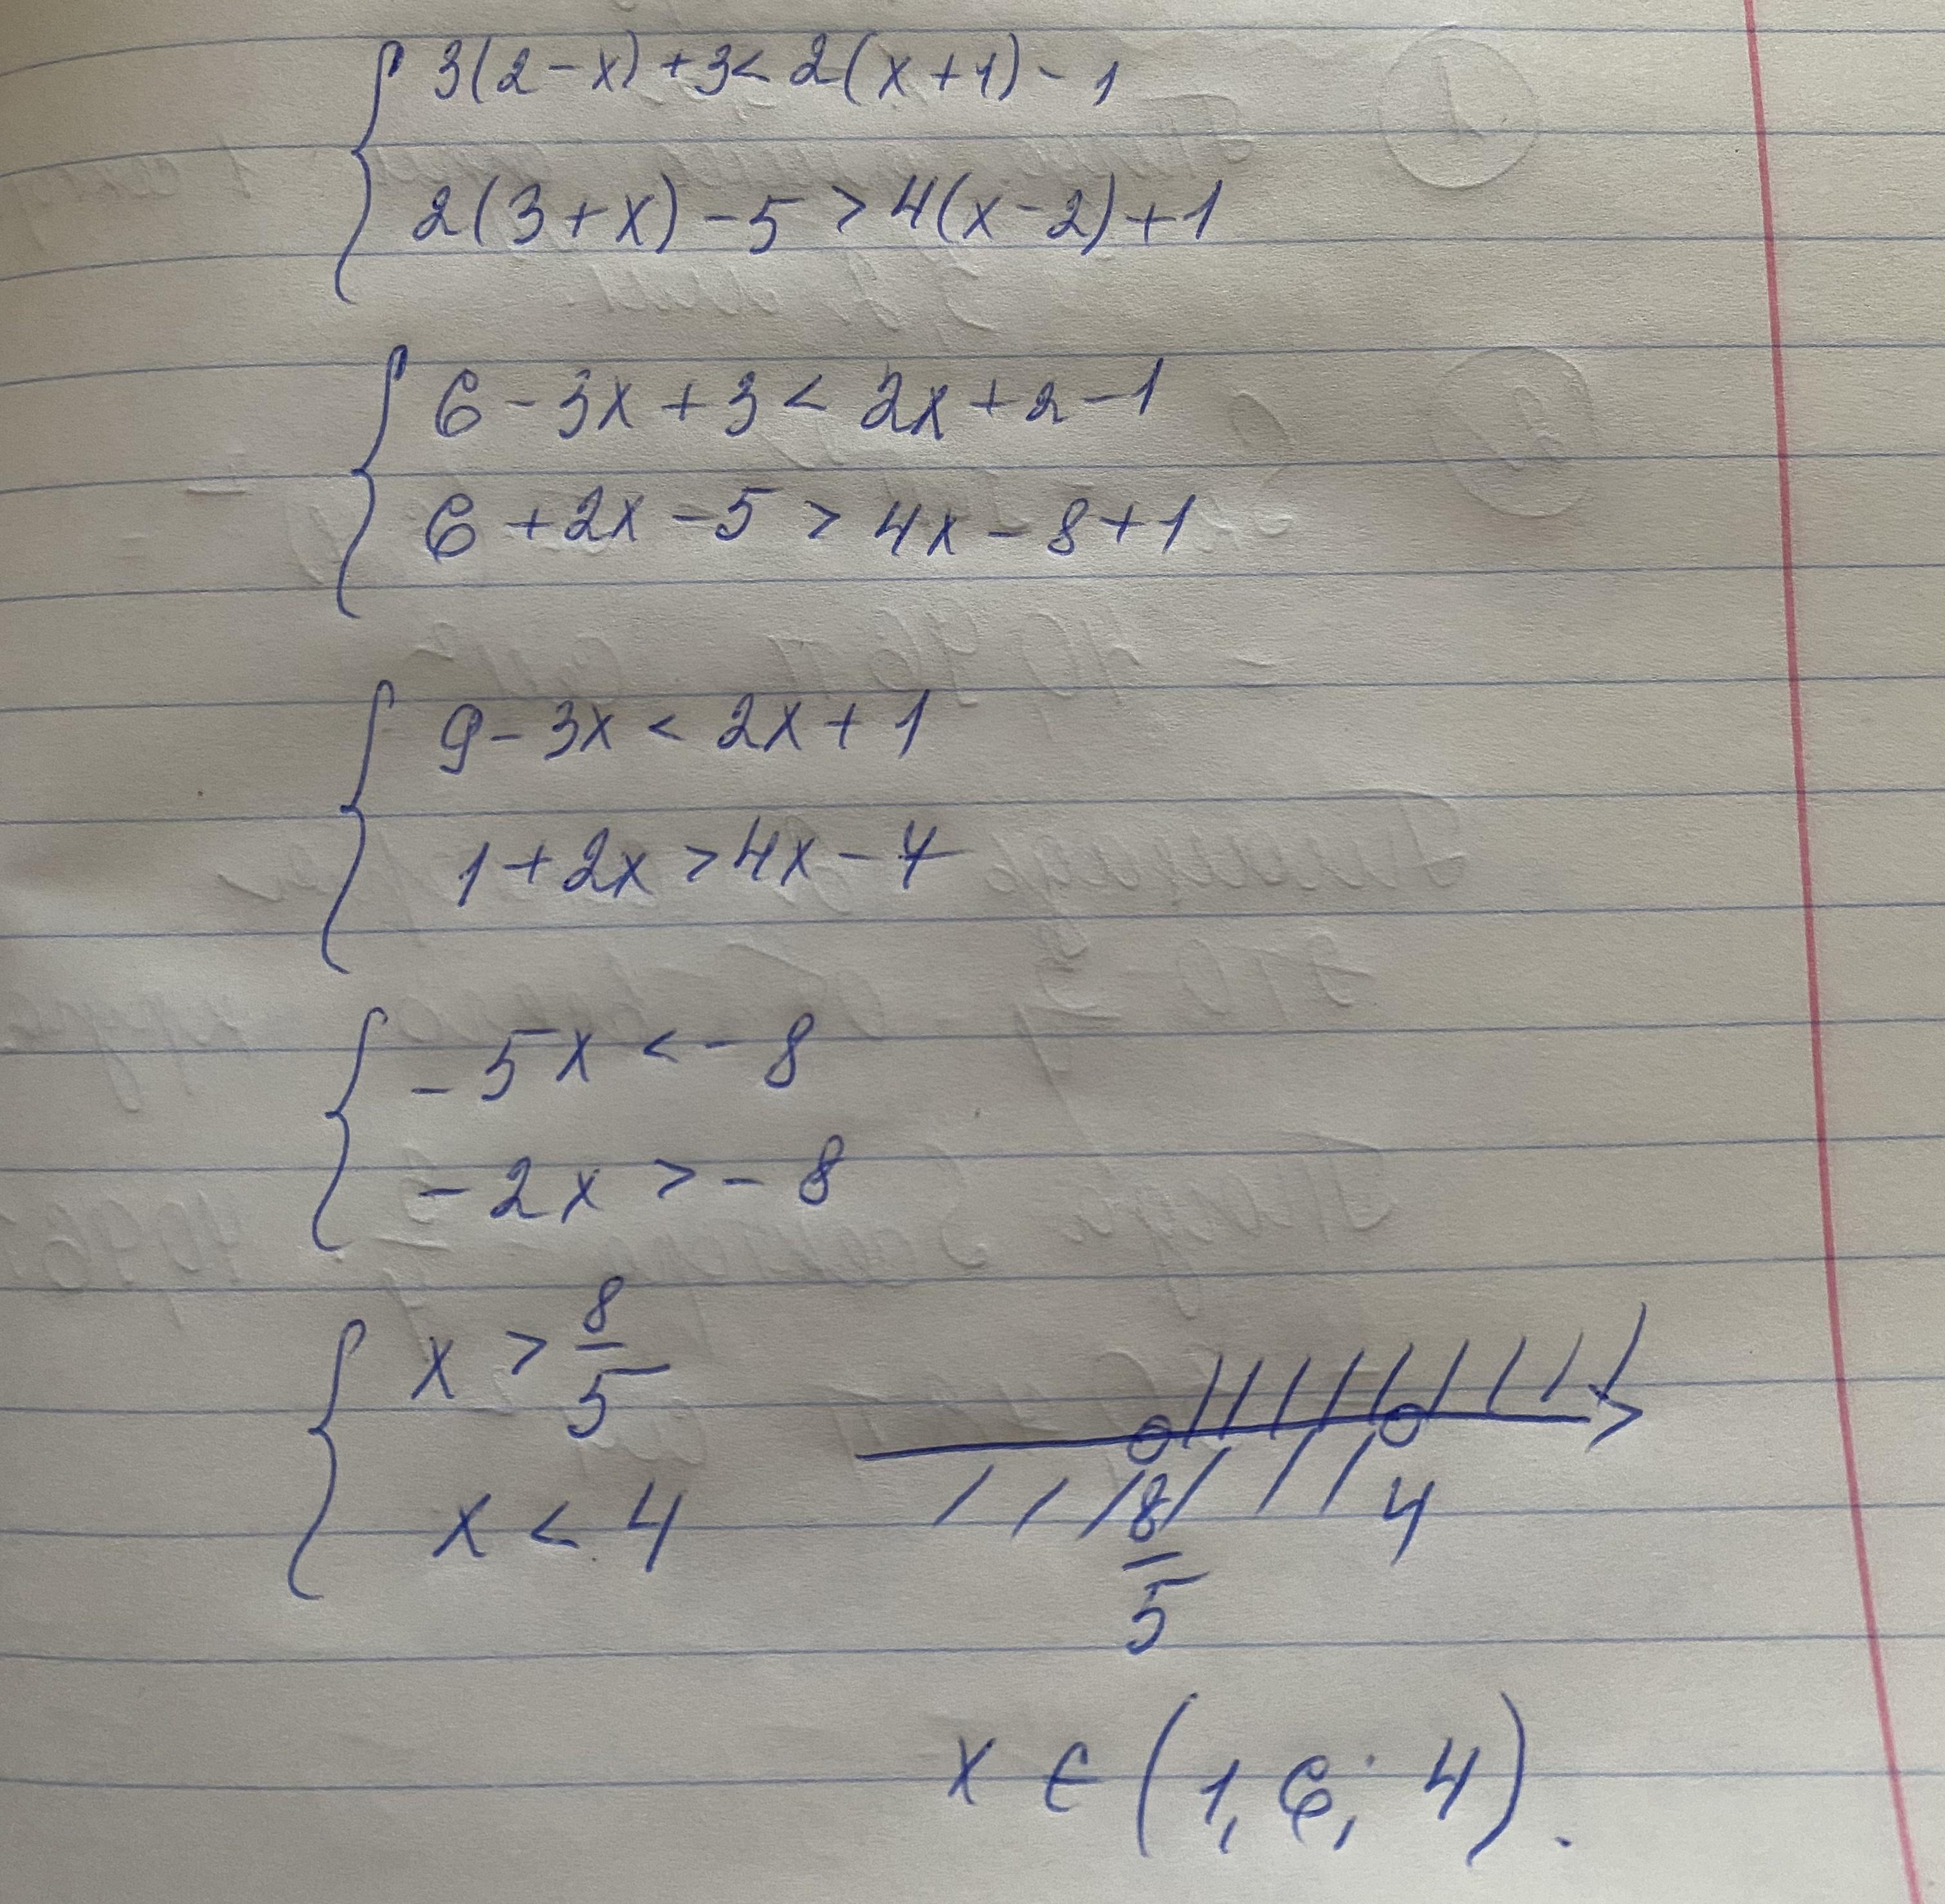 { 3(2-x)+3<2(x+1)-1
2(3+x)-5>4(x-2)+1
{ 6-3x+3<2x+2-1
6+2x-5>4x-8+1
{ 9-3x<2x+1
1+2x>4x-7
{ -5x<-8
-2x>-8
{ x>8/5
x<4
8/5 4
x∈(1,6; 4).